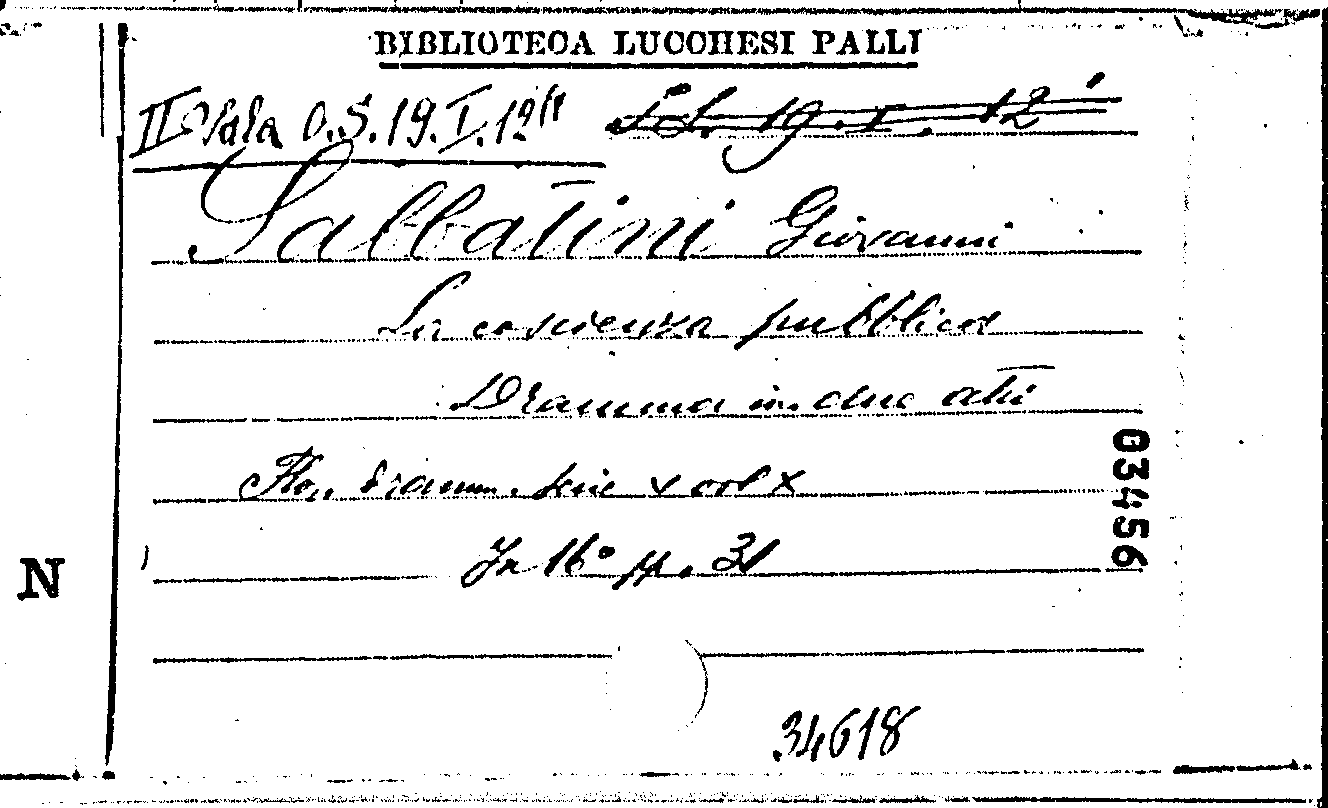 BIBLIOTECA LUCCHESI PALLI
II Sala O.S. 19. I. 12
19. I. 12
Sabbatini Giovanni
La coscienza pubblica
Dramma in due atti
Flor. dramm. serie V vol X
In 16° pp. 31
03456
N
34618